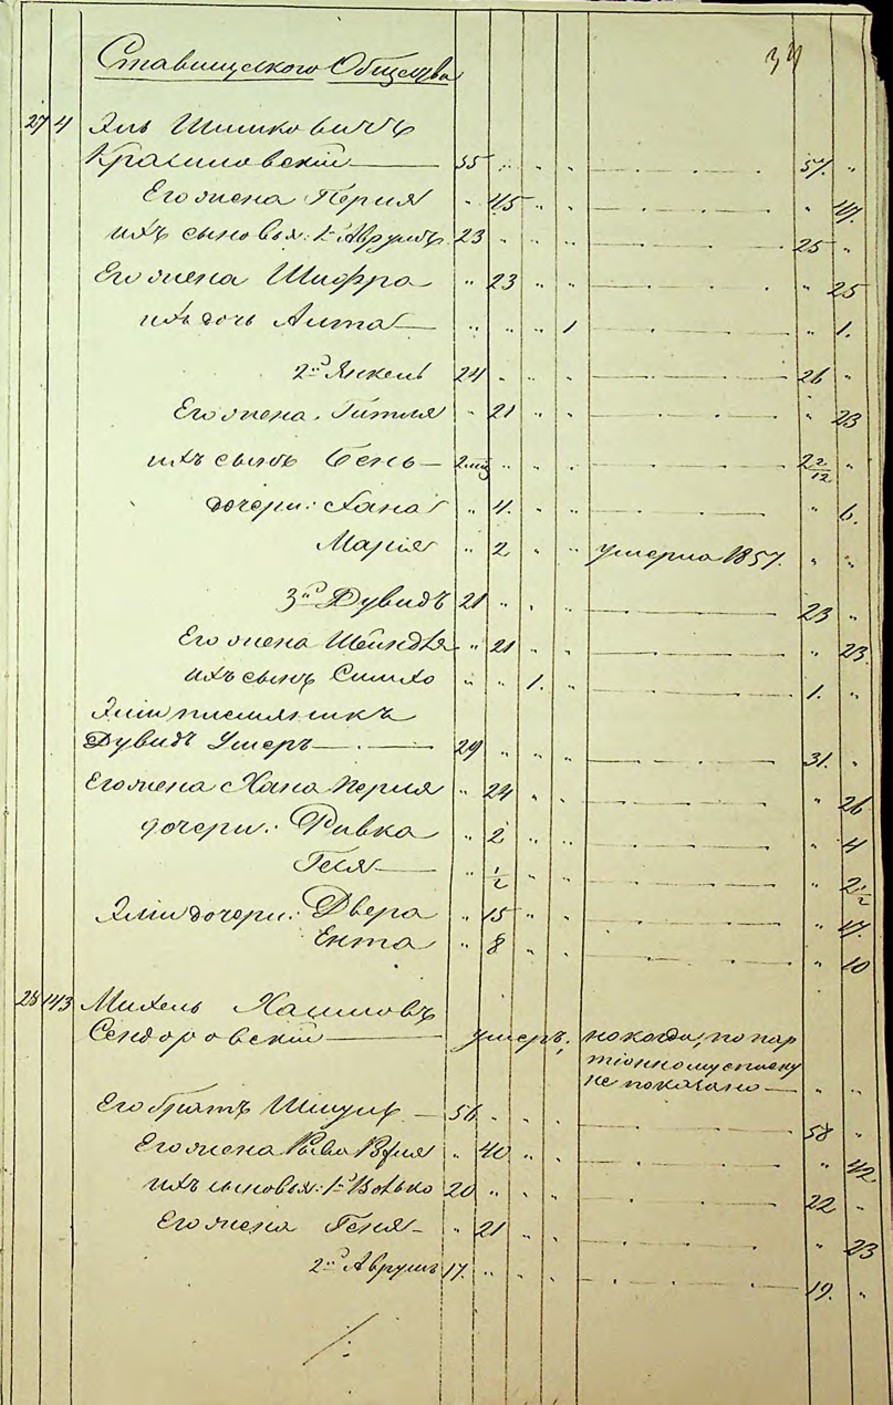 Ставищского Общества 34
27 4 Эль Шимковичъ
Красиловскій — 55 „ „ „ — 57. „
Его жена Перля „ 45 „ „ — „ 47.
ихъ сыновья: 1й Аврумъ 23 „ „ „ — 25 „
Его жена Шифра „ 23 „ „ — „ 25
ихъ дочь Алта — „ „ „ 1 — „ 1.
2й Янкель 24 „ „ „ — 26 „
Его жена Гитля „ 21 „ „ — „ 23
ихъ сынъ Бень — 2 „ „ „ — 2 2/12 „
дочери: Хана „ 4. „ „ — „ 6.
Марія „ 2 „ „ умерла 1857. „ „
3й Дувидъ 21 „ „ „ — 23 „
Его жена Шейндля „ 21 „ „ — „ 23.
ихъ сынъ Симхо „ „ 1. „ — 1. „
Эли племяникъ
Дувидъ Умеръ — 29 „ „ „ — 31. „
Его жена Хана Перля „ 24 „ „ — „ 26
дочери: Ривка „ 2 „ „ — „ 4
Геня — „ 1/2 „ „ — „ 2 1/2
Эли дочери: Двера „ 15 „ „ — „ 17.
Ента „ 8 „ „ — „ 10
28 143 Михель Хаимовъ
Сендоровскій — умеръ; но когда, по пар
тіонному списку
не показано — „ „
Его братъ Шмуль — 56 „ „ „ — 58 „
Его жена Рыва „ 40 „ „ — „ 42
ихъ сыновья: 1й Волько 20 „ „ „ — 22 „
Его жена Геня — „ 21 „ „ — „ 23
2й Аврумъ 17. „ „ „ — 19. „